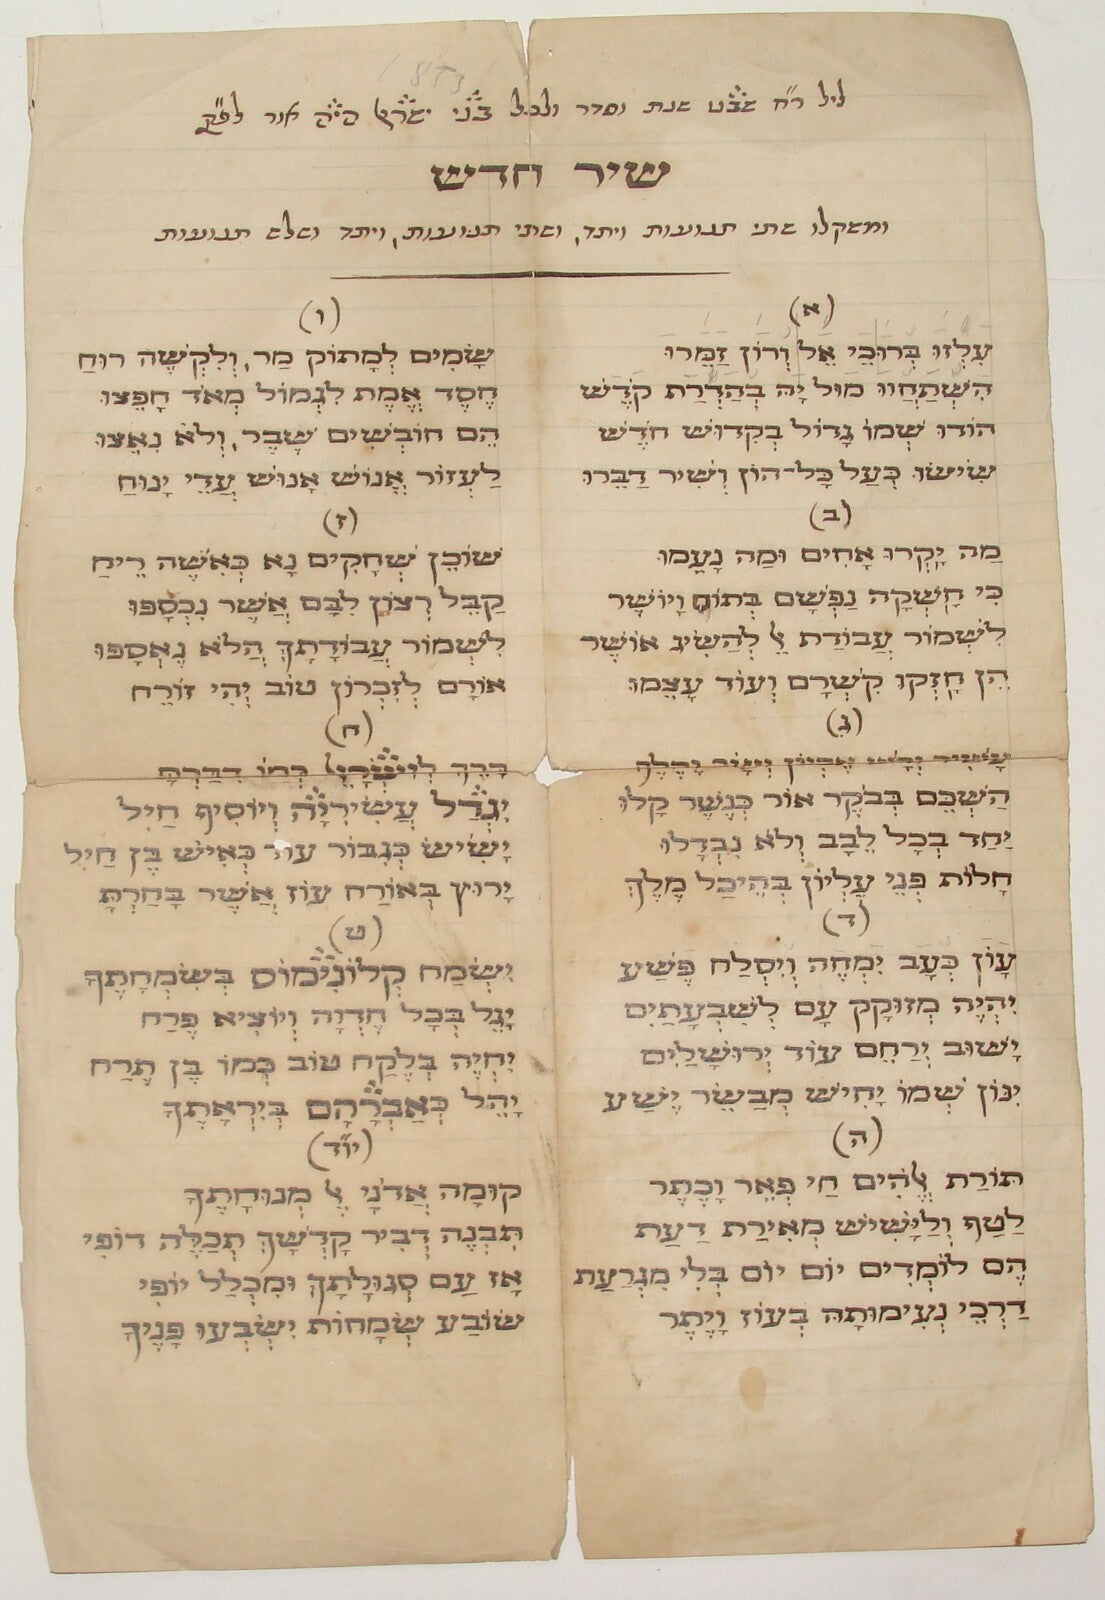 1853
ליל ר״ח שבט שנת וסדר ולכל בני ישראל היה אור לפ״ק
שיר חדש
ומשקלו שתי תנועות ויתד, ושתי תנועות, ויתד ושלש תנועות
(א)
עִלְזוּ בְּרוּכֵי אֵל וְרוֹן זַמֵּרוּ
הִשְׁתַּחֲווּ מוּל יָהּ בְּהַדְרַת קֹדֶשׁ
הוֹדוּ שְׁמוֹ גָדוֹל בְּקִדּוּשׁ חֹדֶשׁ
שִׂישׂוּ כְּעַל כָּל־הוֹן וְשִׁיר דַבֵּרוּ
(ב)
מַה יָקְרוּ אַחִים וּמַה נָעֵמוּ
כִּי חָשְׁקָה נַפְשָׁם בְּתוֹם וָיוֹשֶׁר
לִשְׁמוֹר עֲבוֹדַת אֵל לְהַשִּׂיג אוֹשֶׁר
הֵן חָזְקוּ קִשְׁרָם וְעוֹד עָצֵמוּ
(ג)
הַשְׁכֵּם בְּבֹקֶר אוֹר כְּנֶשֶׁר קָלוּ
יַחַד בְּכָל לֵבָב וְלֹא נִבְדָלוּ
חָלוֹת פְּנֵי עֶלְיוֹן בְּהֵיכַל מֶלֶךְ
(ד)
עָוֹן כְּעָב יִמְחֶה וְיִסְלַח פֶּשַׁע
יִהְיֶה מְזוּקָק עָם לְשִׁבְעָתַיִם
יָשׁוּב יְרַחֵם עוֹד יְרוּשָׁלַיִם
יִנּוֹן שְׁמוֹ יָחִישׁ מְבַשֵּׂר יֶשַׁע
(ה)
תּוֹרַת אֱלֹהִים חַי פְּאֵר וָכֶתֶר
לַטַּף וְלַיָּשִׁישׁ מְאִירַת דַעַת
הֵם לוֹמְדִים יוֹם יוֹם בְּלִי מִגְרַעַת
דַרְכֵי נְעִימוּתָהּ בְּעוֹז וָיֶתֶר
(ו)
שָׂמִים לְמָתוֹק מַר, וְלִקְשֵׁה רוּחַ
חֶסֶד אֱמֶת לִגְמוֹל מְאֹד חָפֵצוּ
הֵם חוֹבְשִׁים שָׁבֶר, וְלֹא נִאֲצוּ
לַעְזוֹר אֱנוֹשׁ אָנוּשׁ עֲדֵי יָנוּחַ
(ז)
שׁוֹכֵן שְׁחָקִים נָא כְּאִשֶּׁה רֵיחַ
קַבֵּל רְצוֹן לִבָּם אֲשֶׁר נִכְסָפוּ
לִשְׁמוֹר עֲבוֹדָתָךְ הֲלֹא נֶאְסָפוּ
אוֹרָם לְזִכְרוֹן טוֹב יְהִי זוֹרֵחַ
(ח)
יִגְדַּל עֲשִׁירְיָה וְיוֹסִיף חַיִל
יָשִׂישׂ כְּגִבּוֹר עוֹד כְּאִישׁ בֶּן חַיִל
יָרוּץ בְּאוֹרַח עוֹז אֲשֶׁר בָּחַרְתָּ
(ט)
יִשְׂמַח קְלוֹנִימוֹס בְּשִׂמְחָתֶךָ
יָגֵל בְּכָל חֶדְוָה וְיוֹצִיא פֶרַח
יִחְיֶה בְלֶקַח טוֹב כְּמוֹ בֶן תֶּרַח
יָהֵל כְּאַבְרָהָם בְּיִרְאָתֶךָ
(יו״ד)
קוּמָה אֲדֹנָי אֵל מְנוּחָתֶךָ
תִּבְנֶה דְבִיר קָדְשָׁךְ תְּכַלֶּה דוֹפִי
אָז עַם סְגוּלָתָךְ וּמִכְלַל יוֹפִי
שׂוֹבַע שְׂמָחוֹת יִשְׂבְּעוּ פָּנֶיךָ